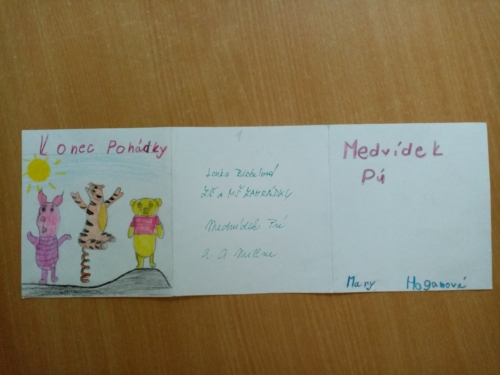 Konec Pohádky
Lenka
ZŠ a MŠ ZAHRÁDKY
Medvídek Pú
A. A Milne
Medvídek
Pú
Mary Haganová